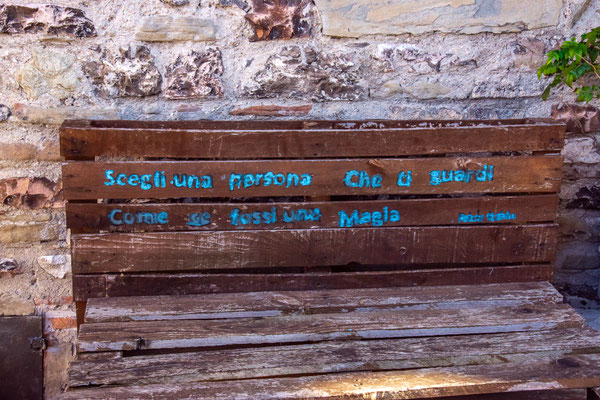 Scegli una persona Che ti guardi
Come se fossi una Magia